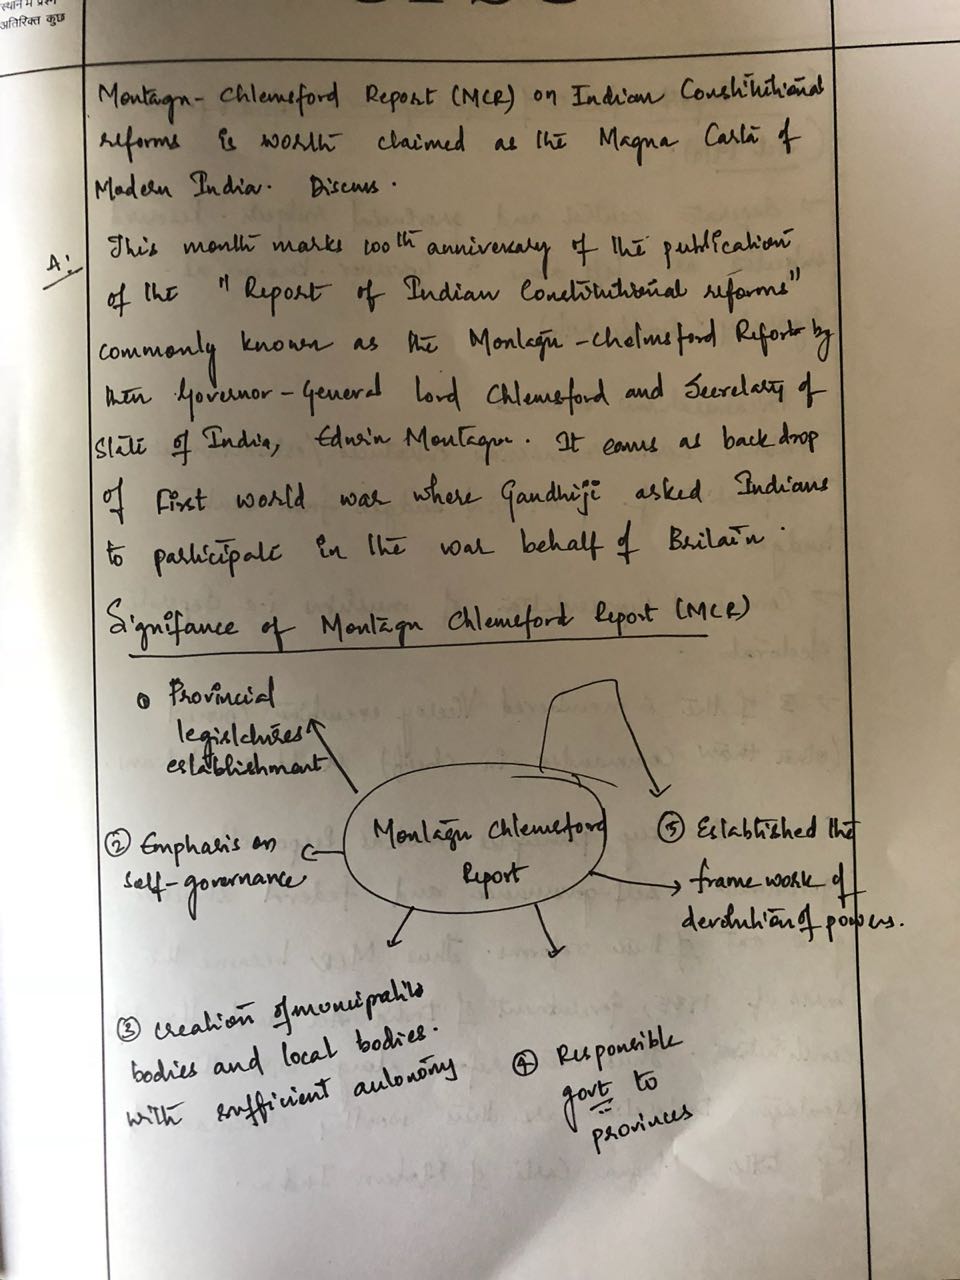 स्थान में प्रश्न
अतिरिक्त कुछ
Montagu- Chlemsford Report (MCR) on Indian Constitutional
reforms is worth claimed as the Magna Carta of
Modern India. Discuss.
A:
This month marks 100th anniversary of the publication
of the "Report of Indian Constitutional reforms"
commonly known as the Montagu -chelmsford Report by
then Governor-General Lord Chlemsford and Secretary of
State of India, Edwin Montague. It comes as back drop
of First world war where Gandhiji asked Indians
to participate in the war behalf of Britain.
Signifance of Montagu Chlemsford Report (MCR)
Provincial
legislatures
establishment
② Emphasis on
self-governance
Montagu Chlemsford
Report
⑤ Established the
frame work of
devolution of powers.
③ creation of municipalite
bodies and local bodies.
with sufficient autonomy
④ Responsible
govt to
provinces